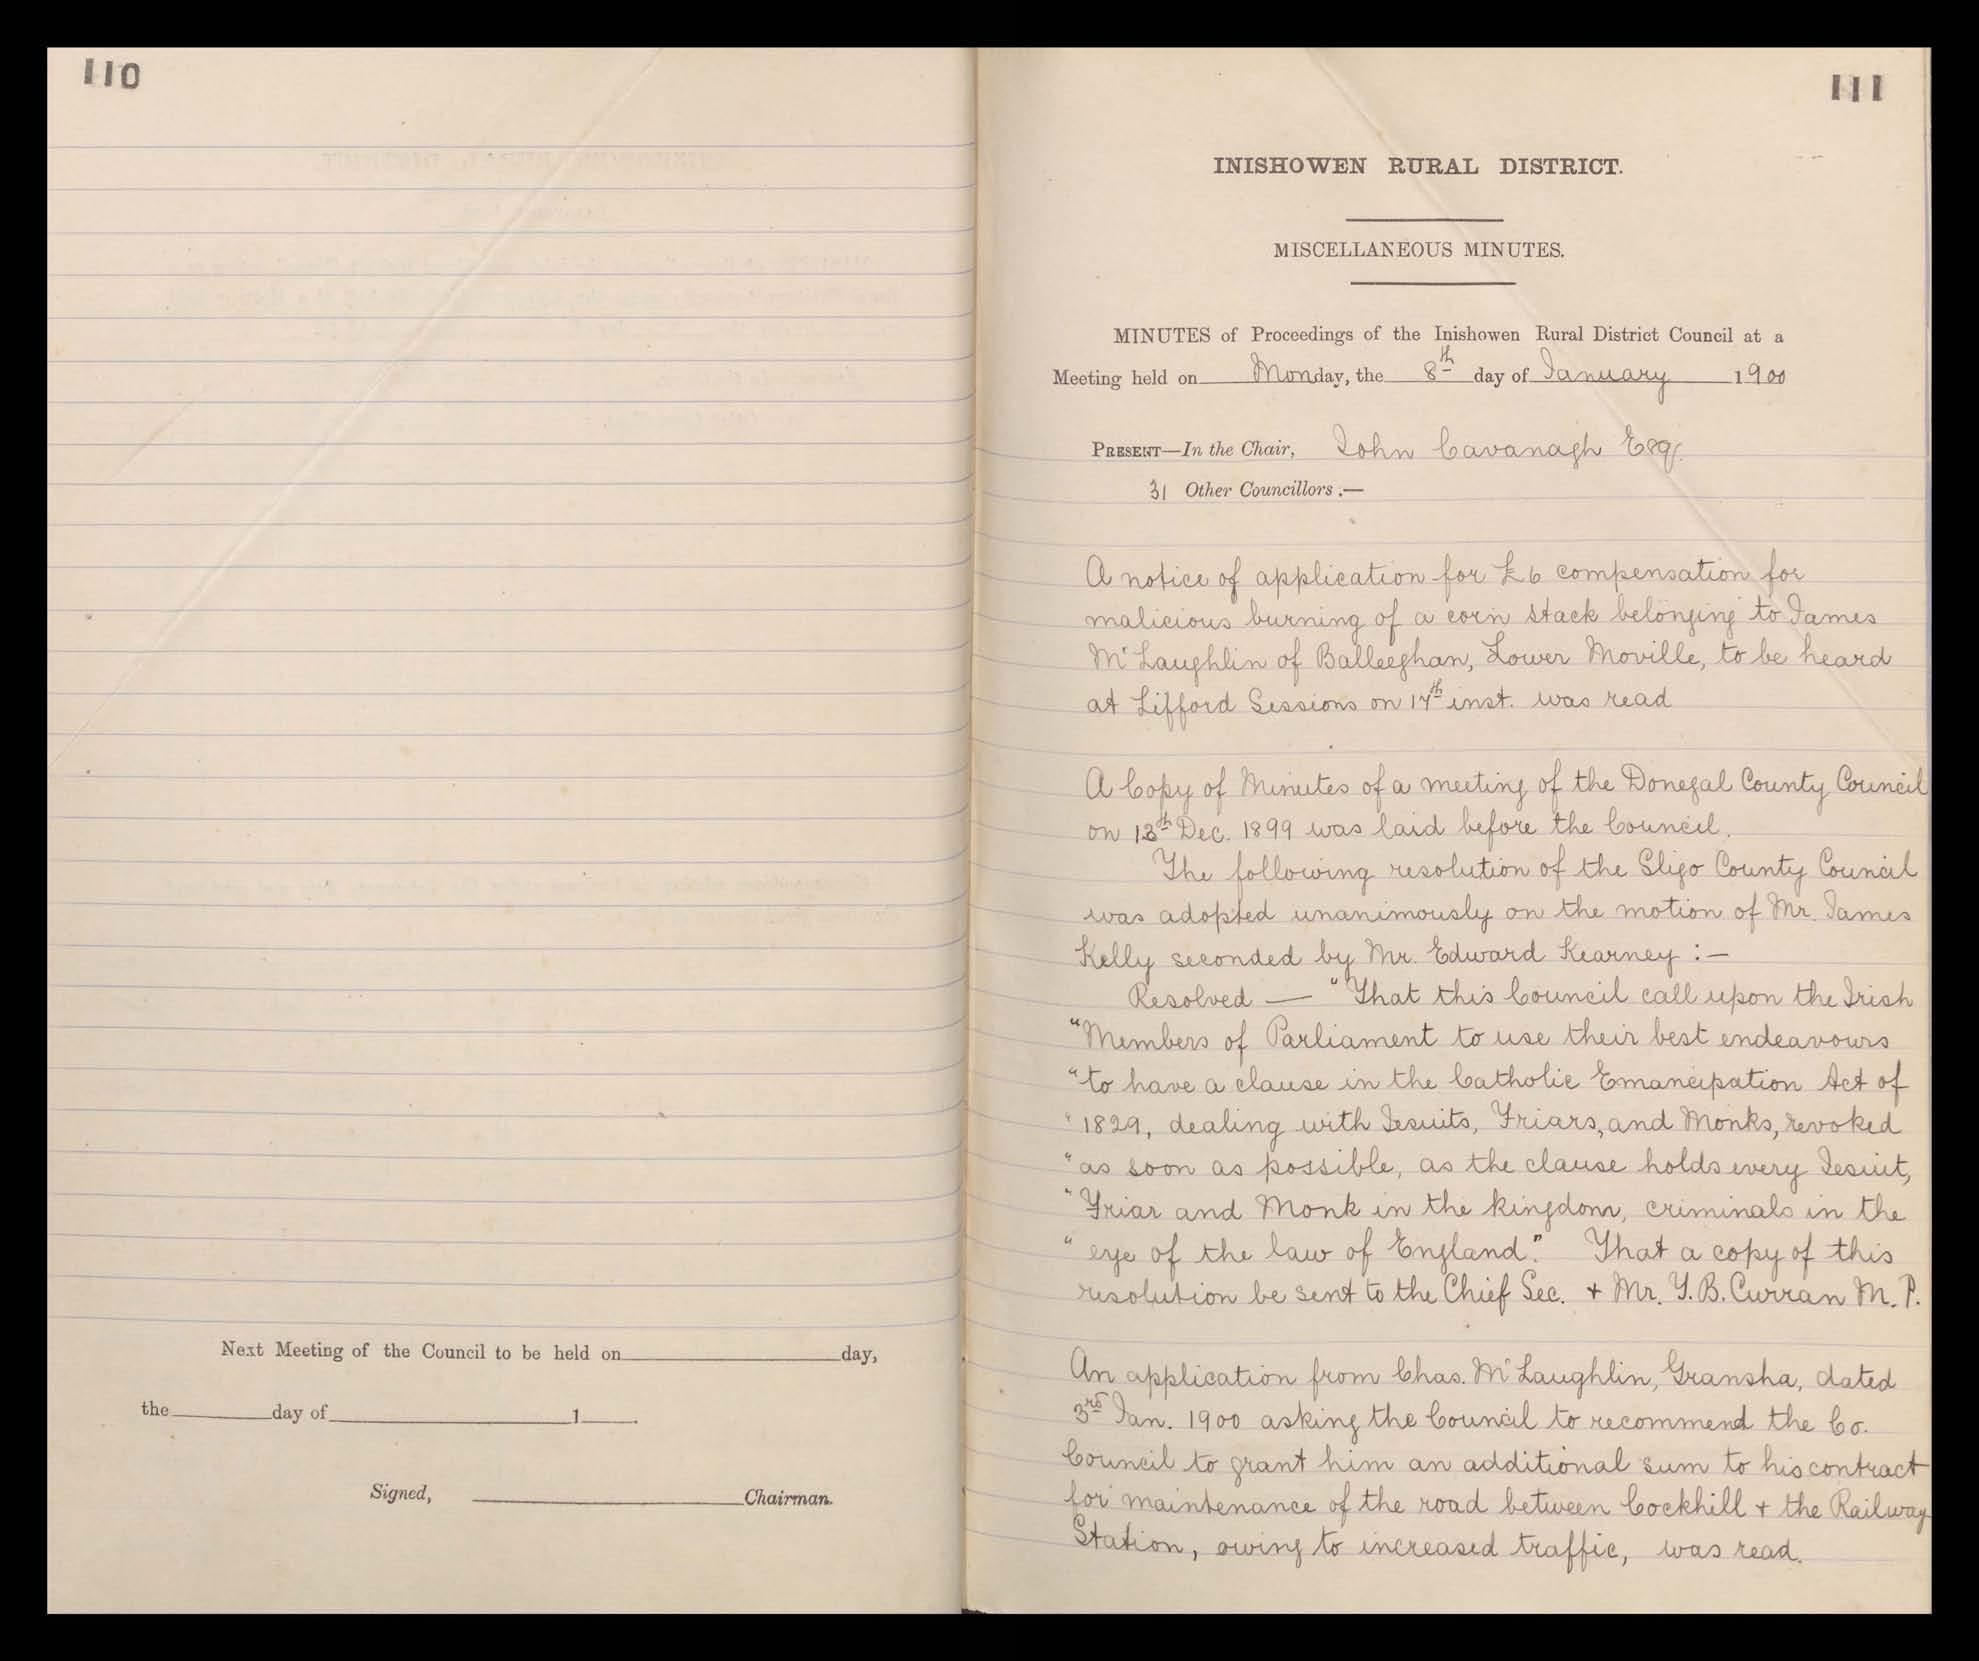 110
Next Meeting of the Council to be held on day,
the day of 1 .
Signed, Chairman.
111
INISHOWEN RURAL DISTRICT.
MISCELLANEOUS MINUTES.
MINUTES of Proceedings of the Inishowen Rural District Council at a
Meeting held on Monday, the 8th day of January 1900
PRESENT—In the Chair, John Cavanagh Esq.
31 Other Councillors :—
A notice of application for £6 compensation for
malicious burning of a corn stack belonging to James
McLaughlin of Balleeghan, Lower Moville, to be heard
at Lifford Sessions on 17th inst. was read
A Copy of Minutes of a meeting of the Donegal County Council
on 13th Dec. 1899 was laid before the Council.
The following resolution of the Sligo County Council
was adopted unanimously on the motion of Mr. James
Kelly seconded by Mr. Edward Kearney :—
Resolved — "That this Council call upon the Irish
"Members of Parliament to use their best endeavours
"to have a clause in the Catholic Emancipation Act of
"1829, dealing with Jesuits, Friars, and Monks, revoked
"as soon as possible, as the clause holds every Jesuit,
"Friar and Monk in the kingdom, criminals in the
"eye of the law of England." That a copy of this
resolution be sent to the Chief Sec. + Mr. T. B. Curran M. P.
An application from Chas. McLaughlin, Gransha, dated
3rd Jan. 1900 asking the Council to recommend the Co.
Council to grant him an additional sum to his contract
for maintenance of the road between Cockhill + the Railway
Station, owing to increased traffic, was read.